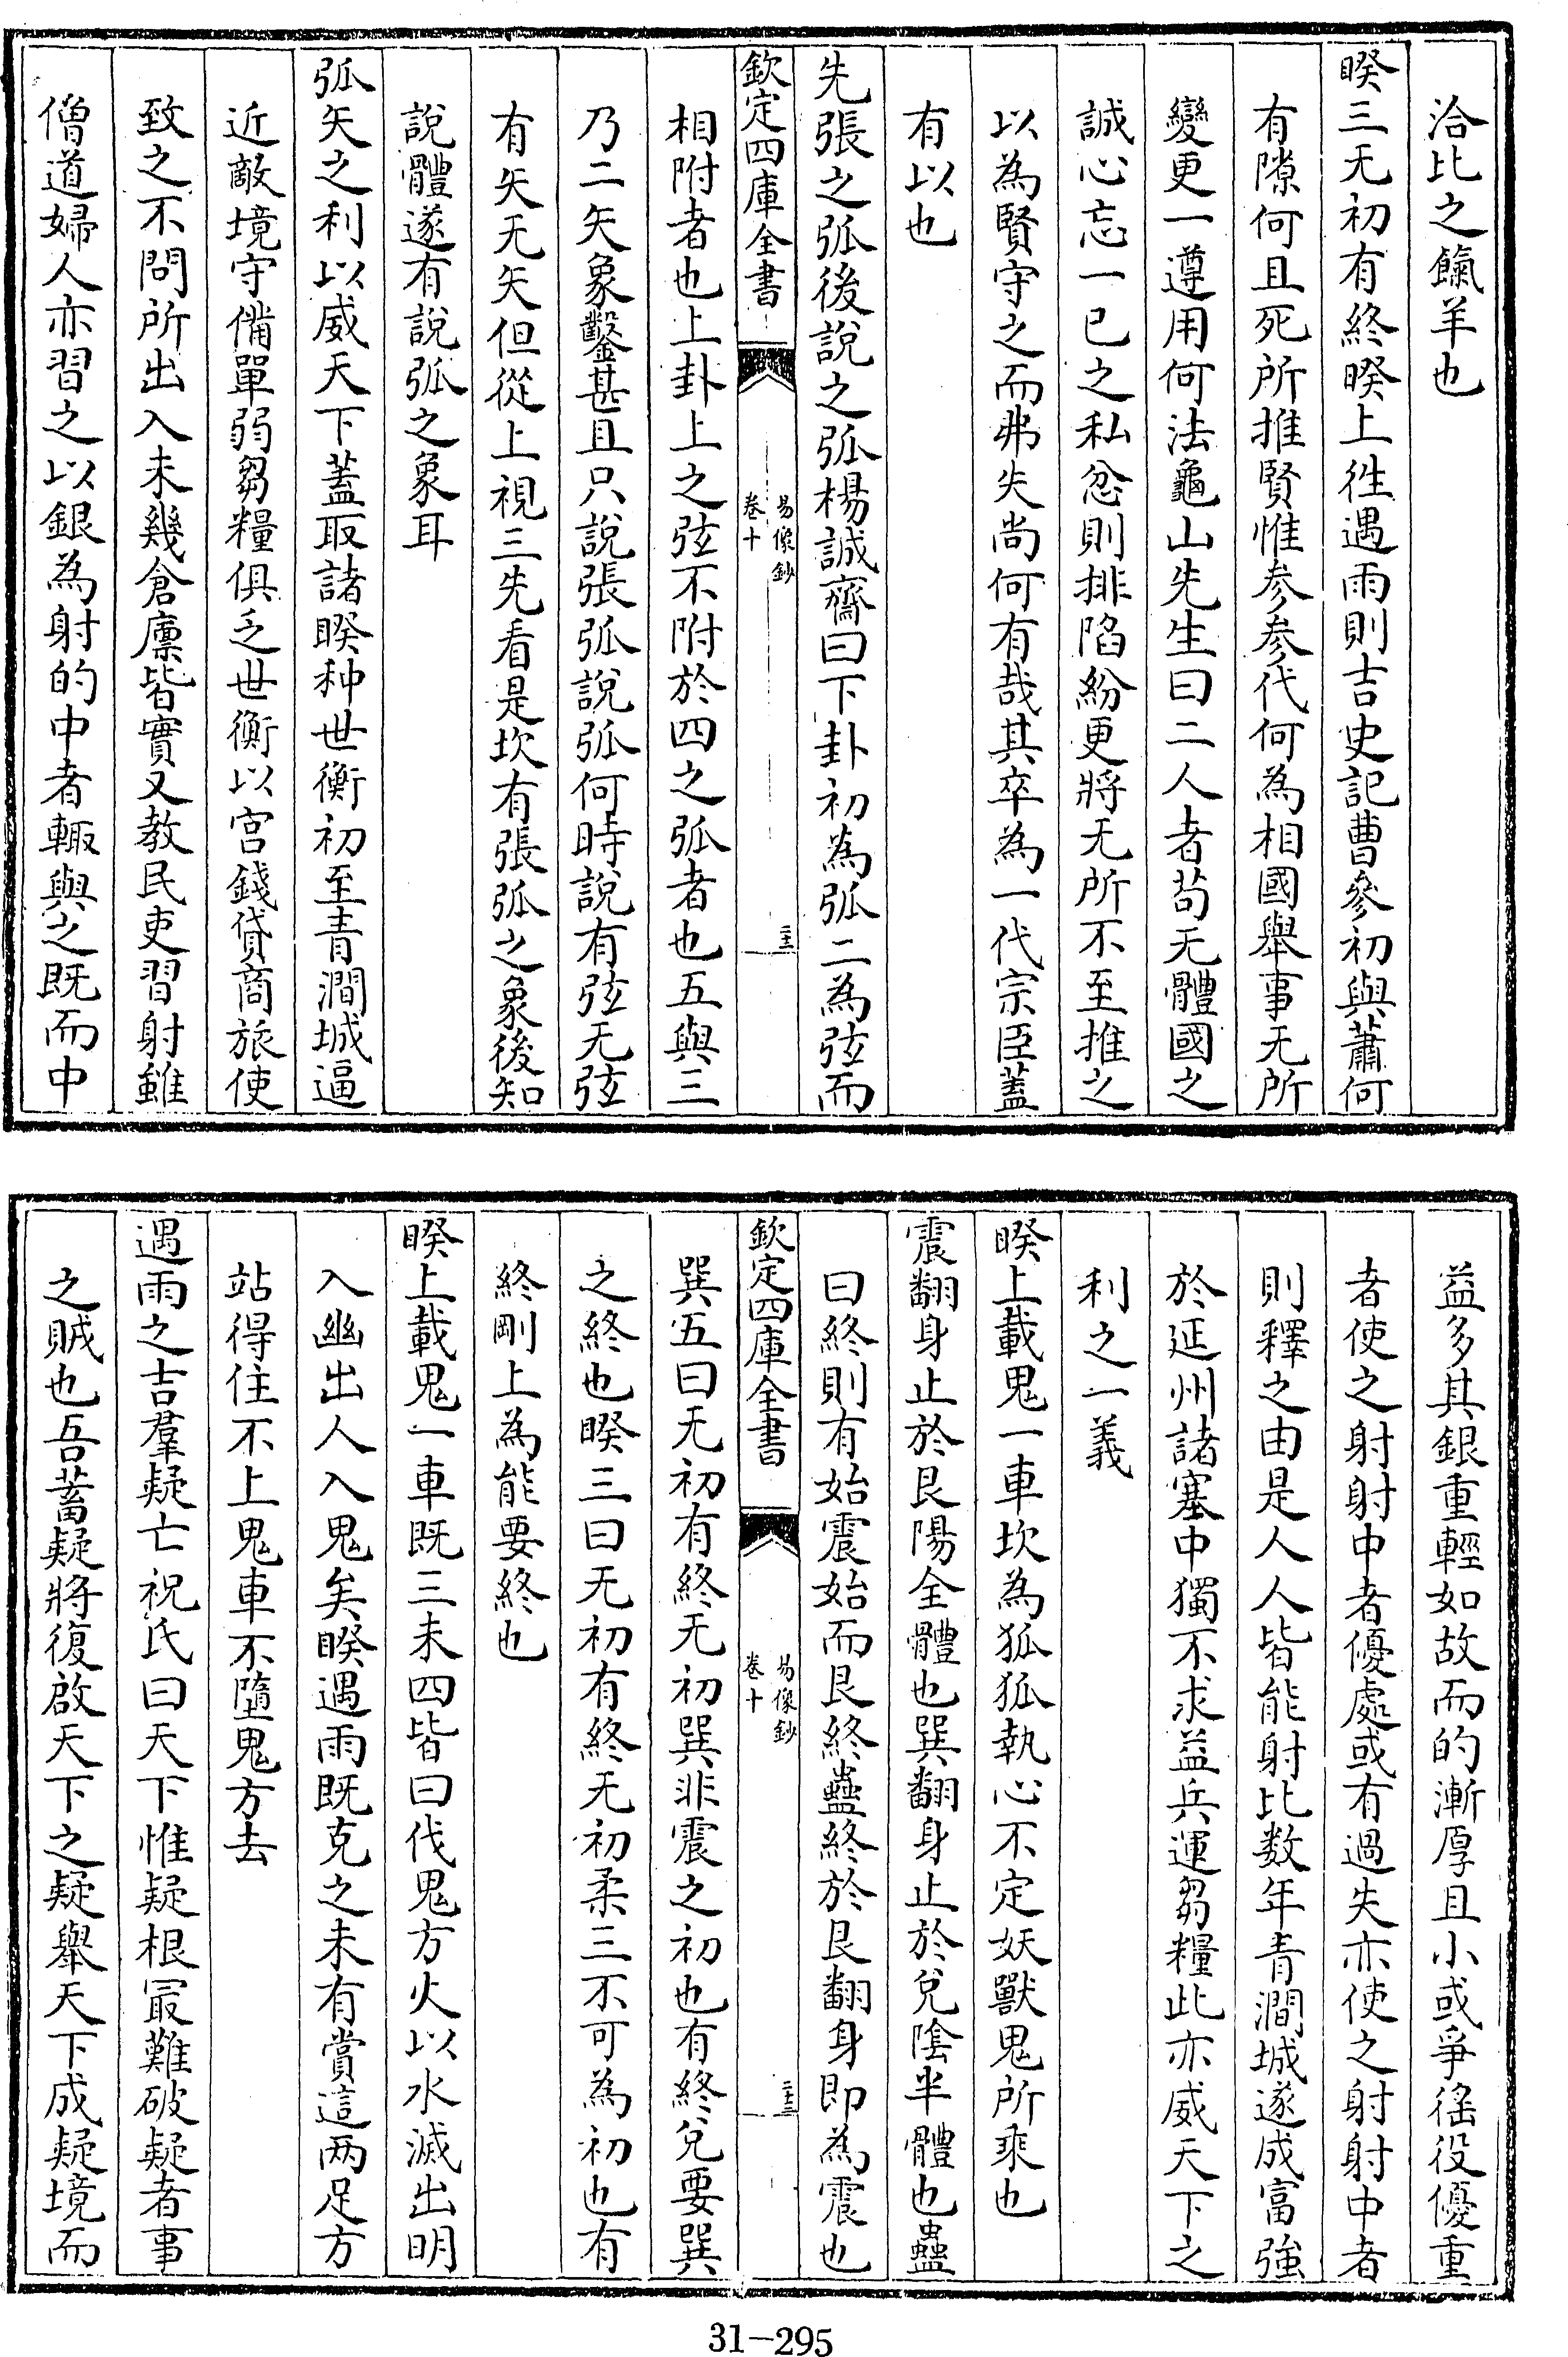 洽比之餼羊也
睽三无初有終睽上徃遇雨則吉史記曹參初與蕭何
有隙何且死所推賢惟参参代何為相國舉事无所
變更一遵用何法龜山先生曰二人者苟无體國之
誠心忘一已之私忿則排陷紛更將无所不至推之
以為賢守之而弗失尚何有哉其卒為一代宗臣蓋
有以也
先張之弧後說之弧楊誠齋曰下卦初為弧二為弦而
欽定四庫全書
易像鈔
卷十
二十二
相附者也上卦上之弦不附於四之弧者也五與三
乃二矢象鑿甚且只說張弧說弧何時說有弦无弦
有矢无矢但從上視三先看是坎有張弧之象後知
說體遂有說弧之象耳
弧矢之利以威天下蓋取諸睽种世衡初至青澗城逼
近敵境守備單弱芻糧俱乏世衡以宫錢貸商旅使
致之不問所出入未幾倉廪皆實又教民吏習射雖
僧道婦人亦習之以銀為射的中者輙與之既而中
益多其銀重輕如故而的漸厚且小或爭徭役優重
者使之射射中者優處或有過失亦使之射射中者
則釋之由是人人皆能射比数年青澗城遂成富強
於延州諸塞中獨不求益兵運芻糧此亦威天下之
利之一義
睽上載鬼一車坎為狐狐執心不定妖獸鬼所乘也
震翻身止於艮陽全體也巽翻身止於兌陰半體也蠱
曰終則有始震始而艮終蠱終於艮翻身即為震也
欽定四庫全書
易像鈔
卷十
二十三
巽五曰无初有終无初巽非震之初也有終兌要巽
之終也睽三曰无初有終无初柔三不可為初也有
終剛上為能要終也
睽上載鬼一車既三未四皆曰伐鬼方火以水滅出明
入幽出人入鬼矣睽遇雨既克之未有賞這两足方
站得住不上鬼車不隨鬼方去
遇雨之吉羣疑亡祝氏曰天下惟疑根冣難破疑者事
之賊也吾蓄疑將復啟天下之疑舉天下成疑境而
31-295